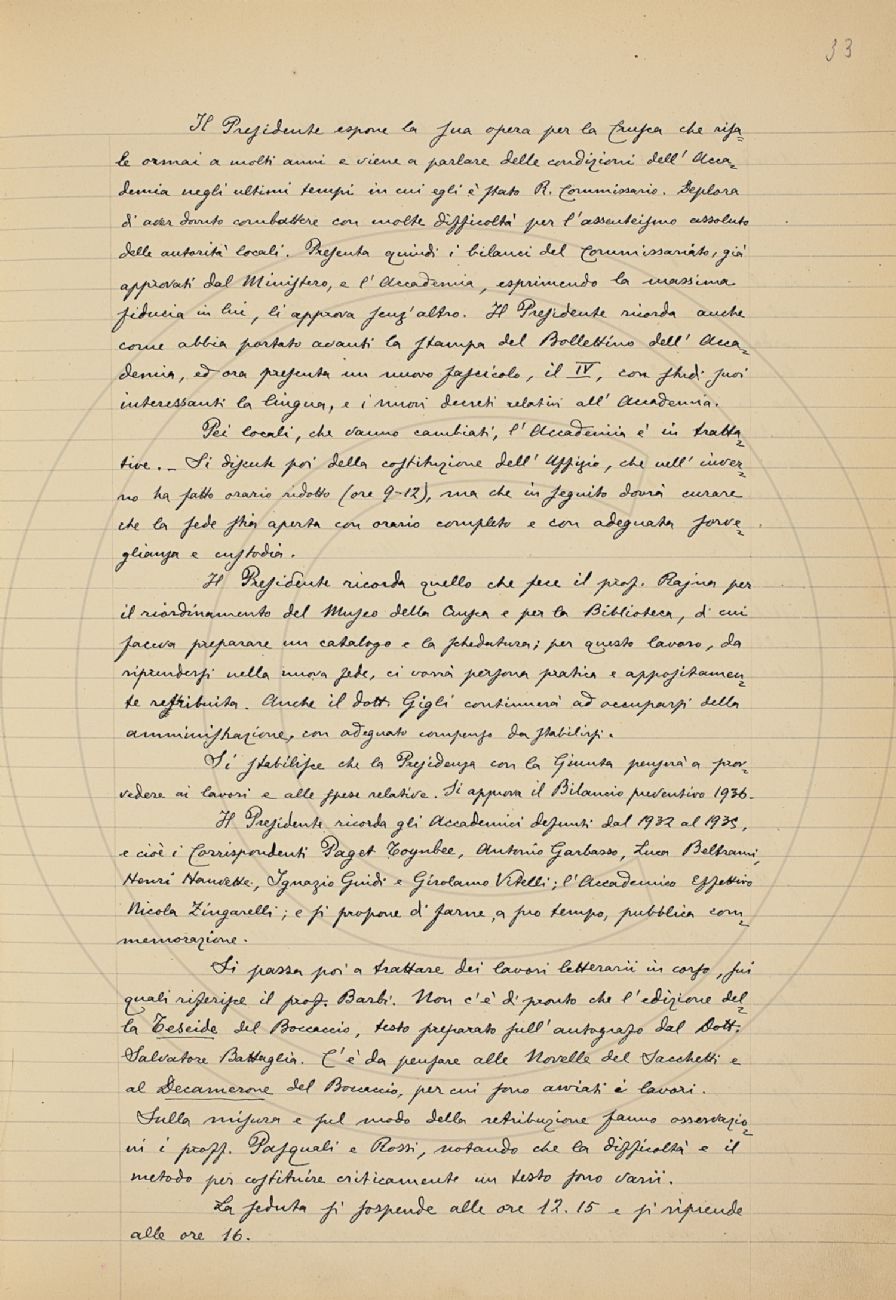 33
Il Presidente espone la sua opera per la Crusca che risa=
le ormai a molti anni e viene a parlare delle condizioni dell' Acca=
demia negli ultimi tempi in cui egli è stato R. Commissario. Deplora
di aver dovuto combattere con molte difficoltà per l'assenteismo assoluto
delle autorità locali. Presenta quindi i bilanci del Commissariato, già
approvati dal Ministero, e l' Accademia, esprimendo la massima
fiducia in lui, li approva senz' altro. Il Presidente ricorda anche
come abbia portato avanti la stampa del Bollettino dell' Acca=
demia, ed ora presenta un nuovo fascicolo, il IV, con studi suoi
interessanti la lingua, e i nuovi decreti relativi all' Accademia.
Pei locali, che vanno cambiati, l' Accademia è in tratta=
tive. _ Si discute poi della costituzione dell' Uffizio, che nell' inver=
no ha fatto orario ridotto (ore 9-12), ma che in seguito dovrà curare
che la sede stia aperta con orario completo e con adeguata sorve=
glianza e custodia.
Il Presidente ricorda quello che fece il prof. Rajna per
il riordinamento del Museo della Crusca e per la Biblioteca, di cui
faceva preparare un catalogo e la schedatura; per questo lavoro, da
riprendersi nella nuova sede, ci vorrà persona pratica e appositamen=
te retribuita. Anche il dott. Gigli continuerà ad occuparsi della
amministrazione, con adeguato compenso da stabilirsi.
Si stabilisce che la Presidenza con la Giunta penserà a prov=
vedere ai lavori e alle spese relative. Si approva il Bilancio preventivo 1936.
Il Presidente ricorda gli Accademici defunti dal 1932 al 1935,
e cioè i Corrispondenti Paget Toynbee, Antonio Garbasso, Luca Beltrami,
Henri Hauvette, Ignazio Guidi e Girolamo Vitelli; l'Accademico Effettivo
Nicola Zingarelli; e si propone di farne, a suo tempo, pubblica com=
memorazione.
Si passa poi a trattare dei lavori letterarii in corso, sui
quali riferisce il prof. Barbi. Non c'è di pronto che l'edizione del=
la Teseide del Boccaccio, testo preparato sull' autografo dal Dott.
Salvatore Battaglia. C'è da pensare alle Novelle del Sacchetti e
al Decamerone del Boccaccio, per cui sono avviati i lavori.
Sulla misura e sul modo della retribuzione fanno osservazio=
ni i proff. Pasquali e Rossi, notando che la difficoltà e il
metodo per costituire criticamente un testo sono varii.
La seduta si sospende alle ore 12.15 e si riprende
alle ore 16.